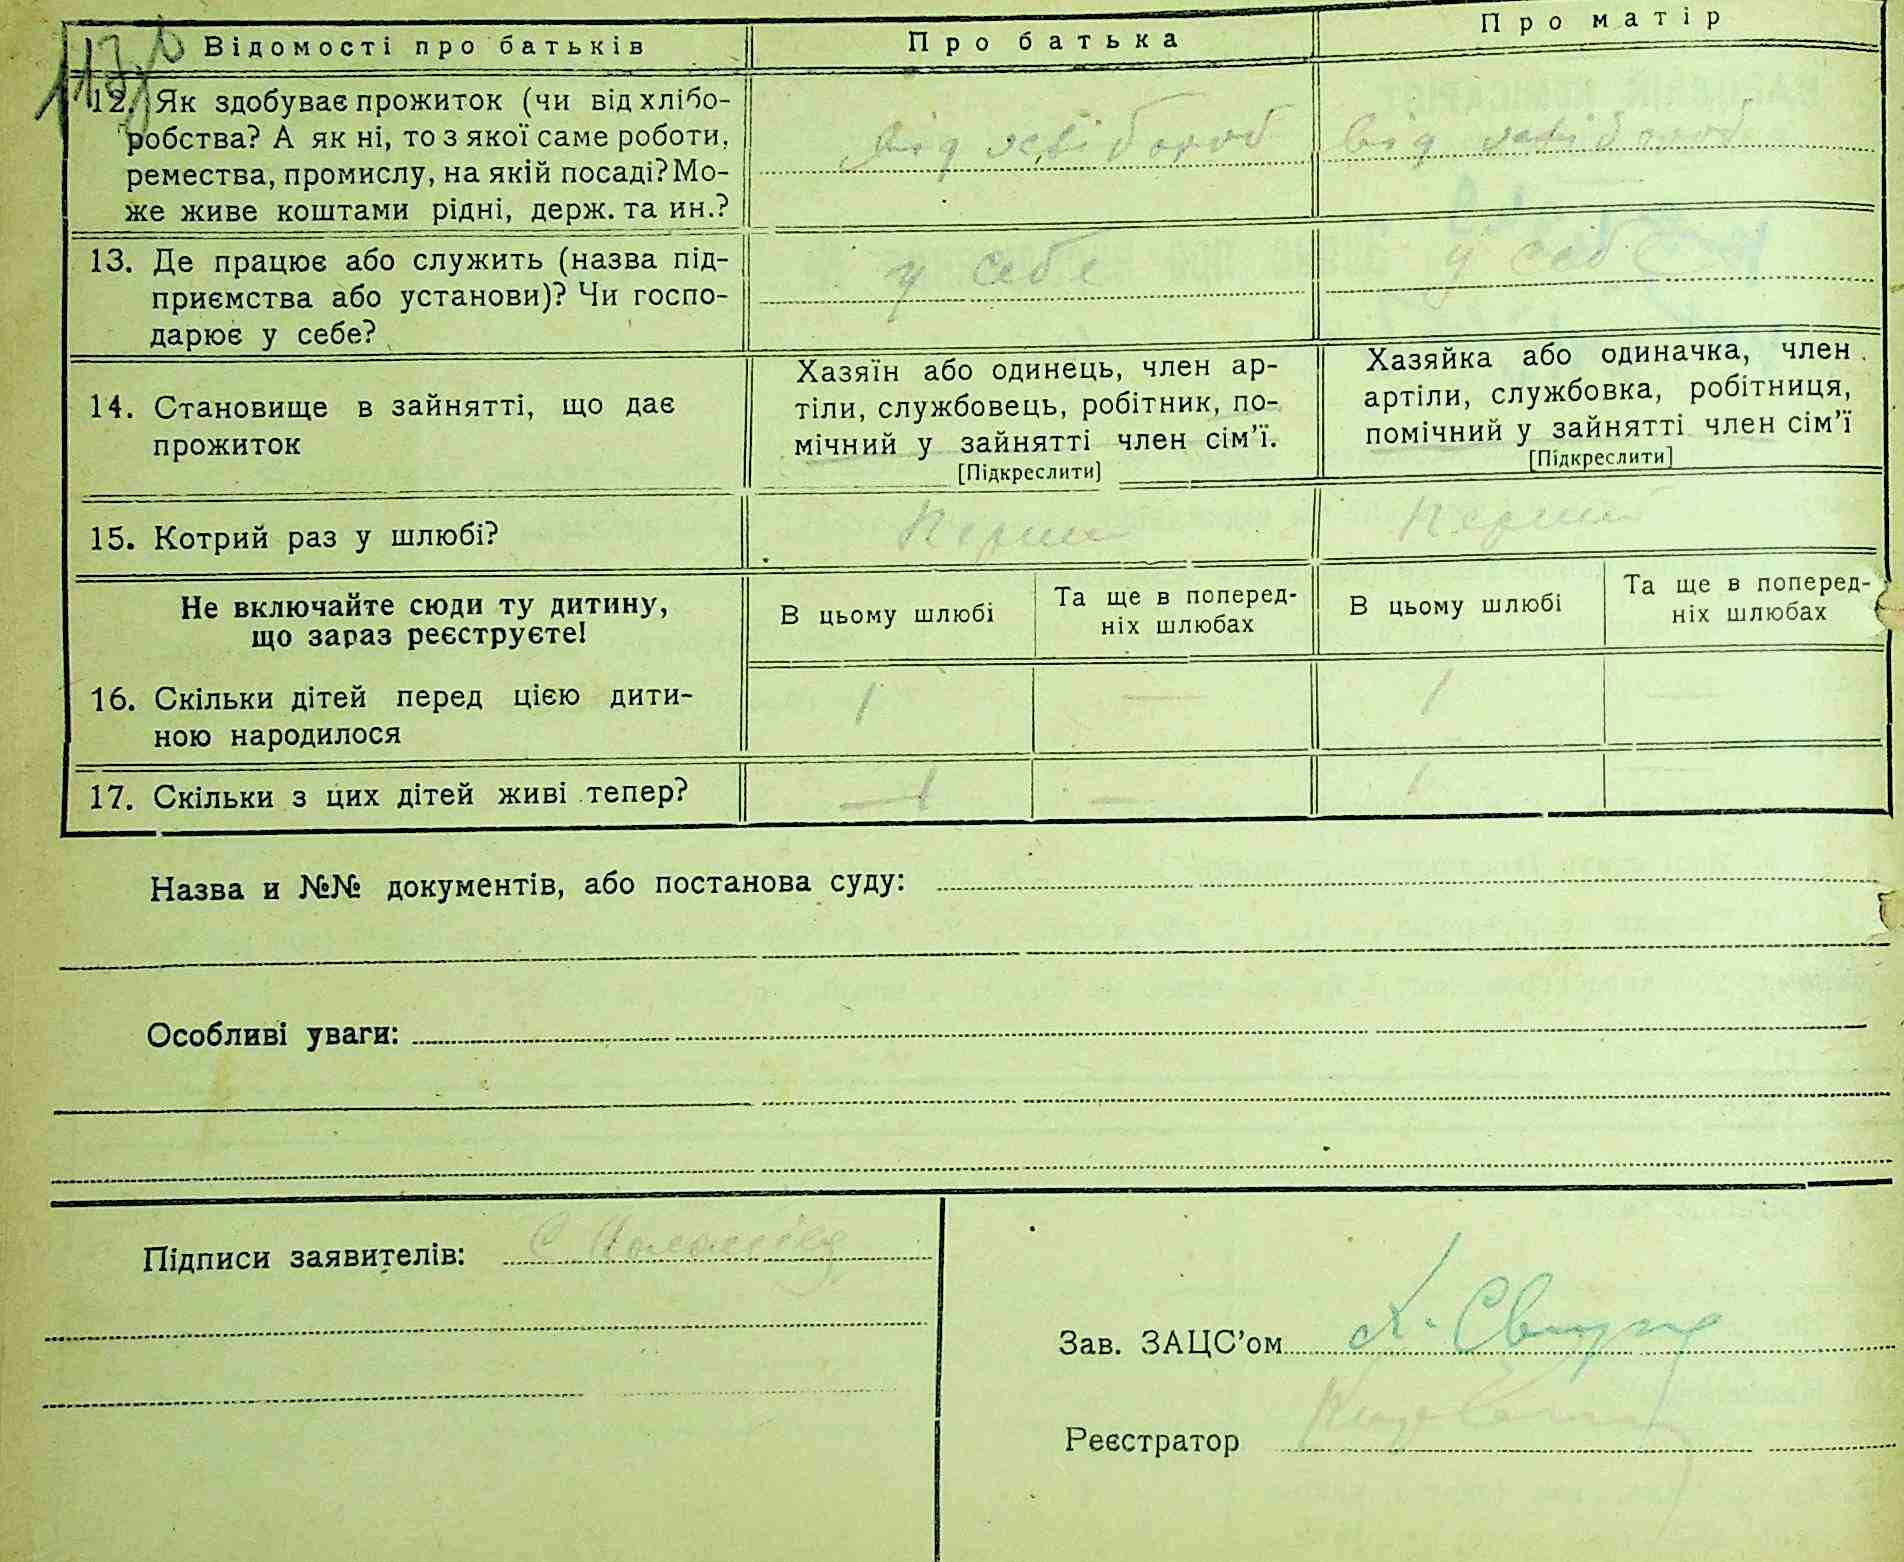 Відомості про батьків
Про батька
Про матір
12. Як здобуває прожиток (чи від хлібо-
робства? А як ні, то з якої саме роботи,
ремества, промислу, на якій посаді? Мо-
же живе коштами рідні, держ. та ин.?
від хлібороб
від хлібороб
13. Де працює або служить (назва під-
приємства або установи)? Чи госпо-
дарює у себе?
у себе
у себе
14. Становище в зайнятті, що дає
прожиток
Хазяїн або одинець, член ар-
тіли, службовець, робітник, по-
мічний у зайнятті член сім’ї.
[Підкреслити]
Хазяйка або одиначка, член
артіли, службовка, робітниця,
помічний у зайнятті член сім’ї
[Підкреслити]
15. Котрий раз у шлюбі?
Перший
Перший
Не включайте сюди ту дитину,
що зараз реєструєте!
В цьому шлюбі
Та ще в поперед-
ніх шлюбах
В цьому шлюбі
Та ще в поперед-
ніх шлюбах
16. Скільки дітей перед цією дити-
ною народилося
1
—
1
—
17. Скільки з цих дітей живі тепер?
1
—
1
—
Назва и №№ документів, або постанова суду:
Особливі уваги:
Підписи заявителів:
Зав. ЗАЦС’ом
Реєстратор